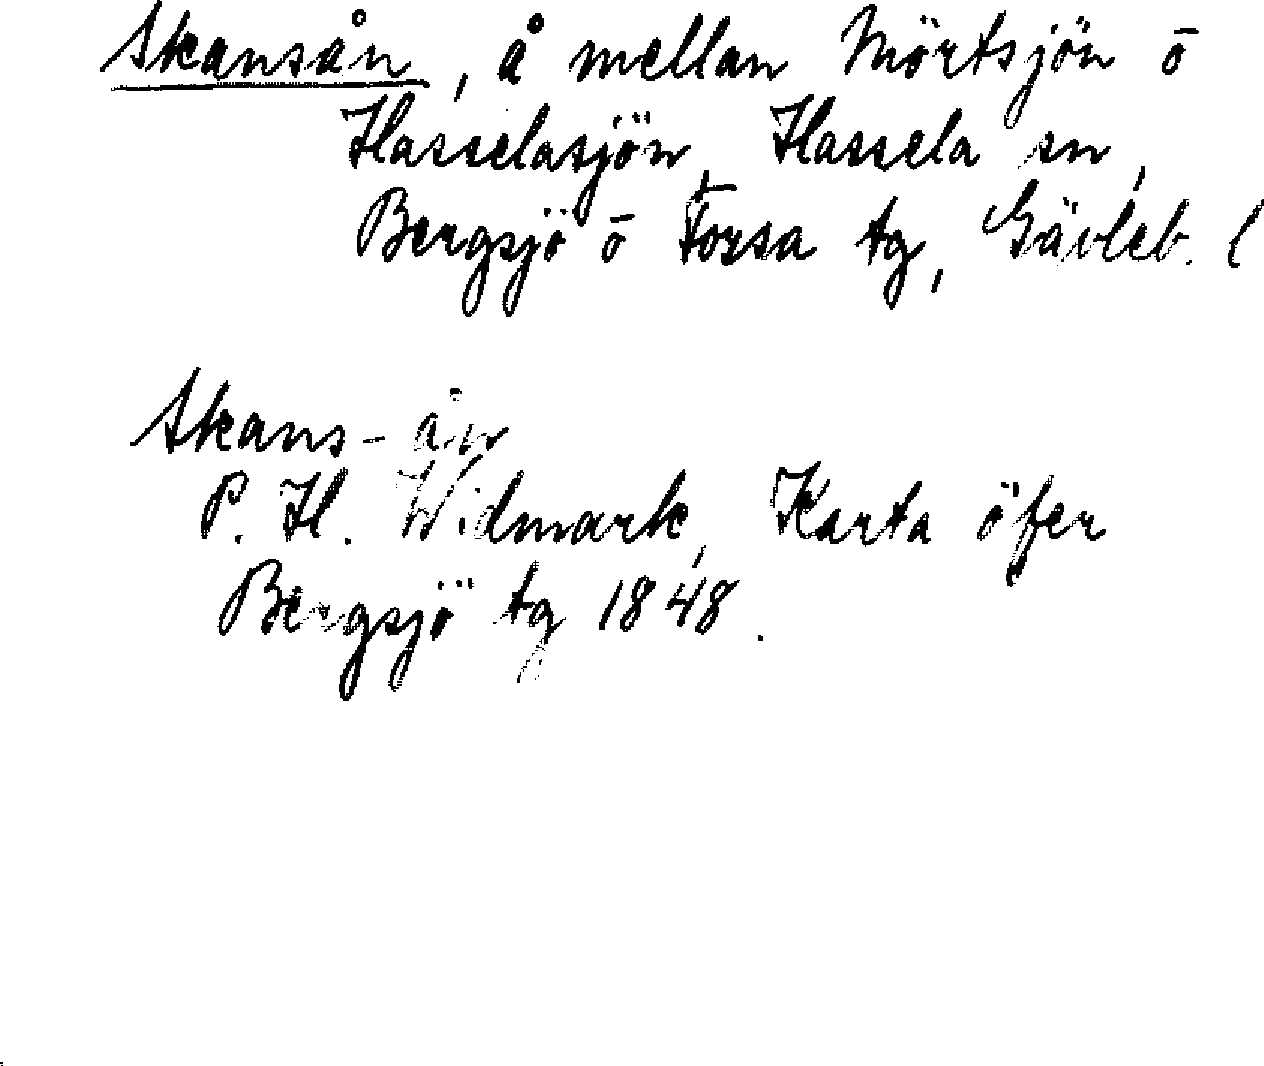 Skansån, å mellan Mörtsjön o
Hasselasjön, Hassela sn,
Bergsjö o Forsa tg, Gävleb. l
Skans-ån
P. H. Widmark, Karta öfer
Bergsjö tg 1848.